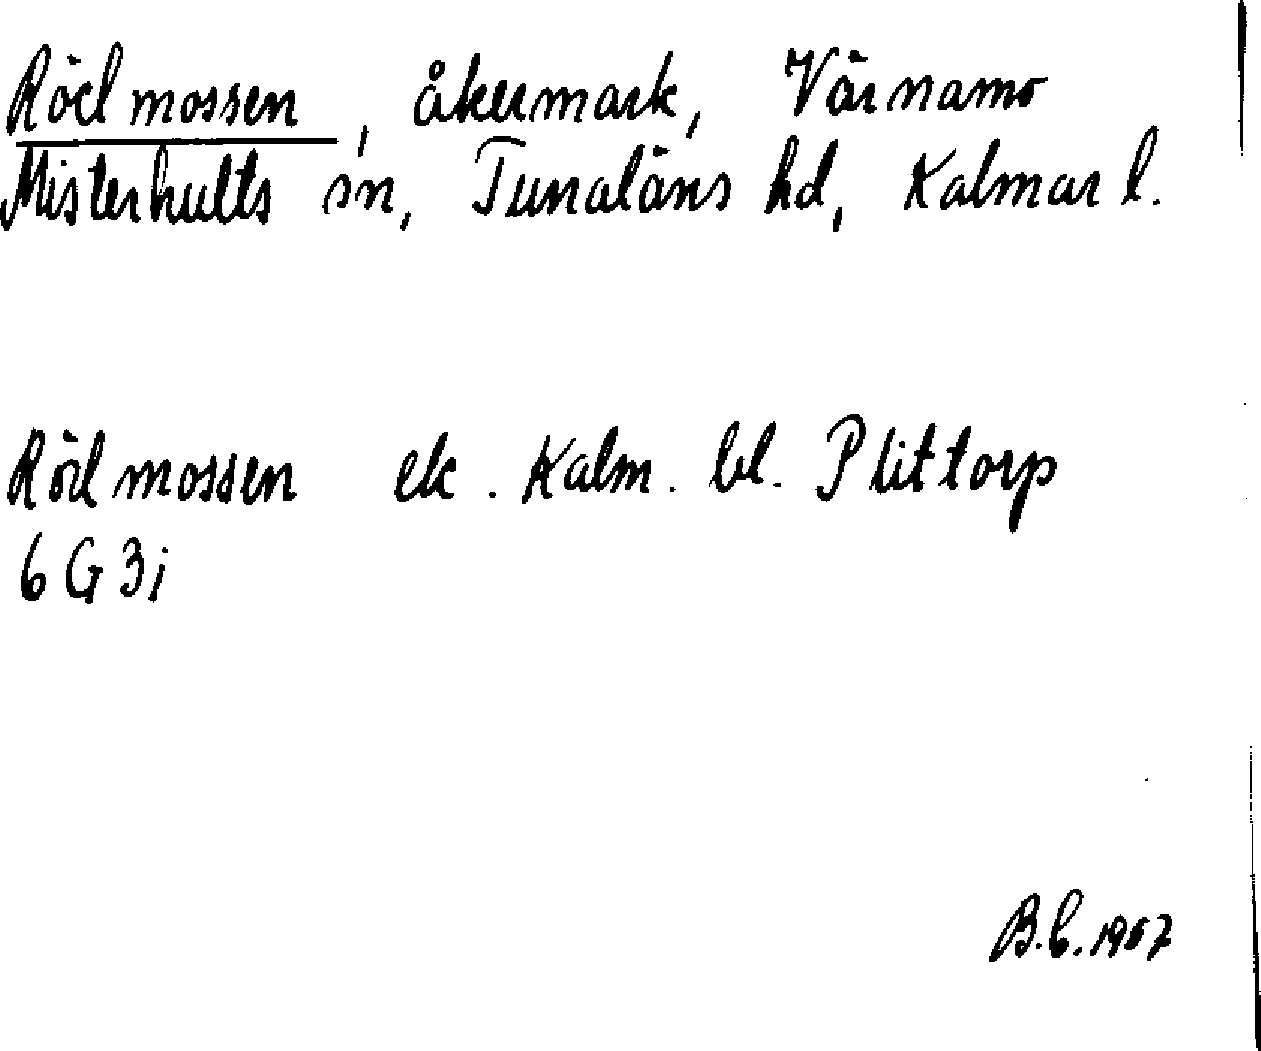 Rödmossen, åkermark, Värnamo
Misterhults sn, Tunaläns hd, Kalmar l.
Rödmossen ek. Kalm. bl. Plittorp
6 G 3i
B.C. 1967